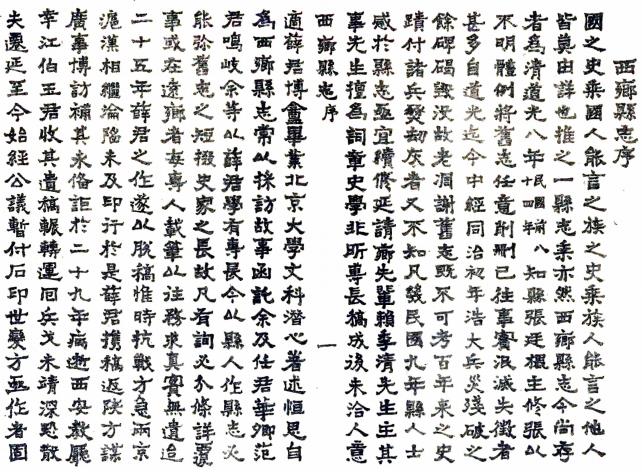 西鄉縣志序
國之史乘國人能言之族之史乘族人能言之他人
皆莫由詳也推之一縣志乘亦然西鄉縣志今尚存
者爲清道光八年民國前八十四年知縣張廷槐主修張以
不明體例將舊志任意削刪已往事實泯滅失徵者
甚多自道光迄今中經同治初年浩大兵災殘破之
餘碑碣毀沒故老凋謝舊志既不可考百年來之史
蹟付諸兵燹劫灰者又不知凡幾民國九年縣人士
感於縣志亟宜續修延請鄉先輩賴季清先生主其
事先生擅爲詞章史學非所專長稿成後未洽人意
西鄉縣志 序 一
適薛君博盦畢業北京大學文科潛心著述恒思自
爲西鄉縣志常以採訪故事函託余及任君華卿范
君鳴岐余等以薛君學有專長今以縣人作縣志必
能弥舊志之短掇史家之長故凡有詢必分條詳覆
事或在遠鄉者每專人載筆以往務求真實無遺迨
二十五年薛君之作遂以脫稿惟時抗戰方急兩京
滬漢相繼淪陷未及印行於是薛君攜稿返陝方謀
廣事博訪補其未備詎於二十九年病逝西安教廳
幸江伯玉君收其遺稿輾轉運回兵戈未靖深恐散
失遷延至今始經公議暫付石印世變方亟作者固